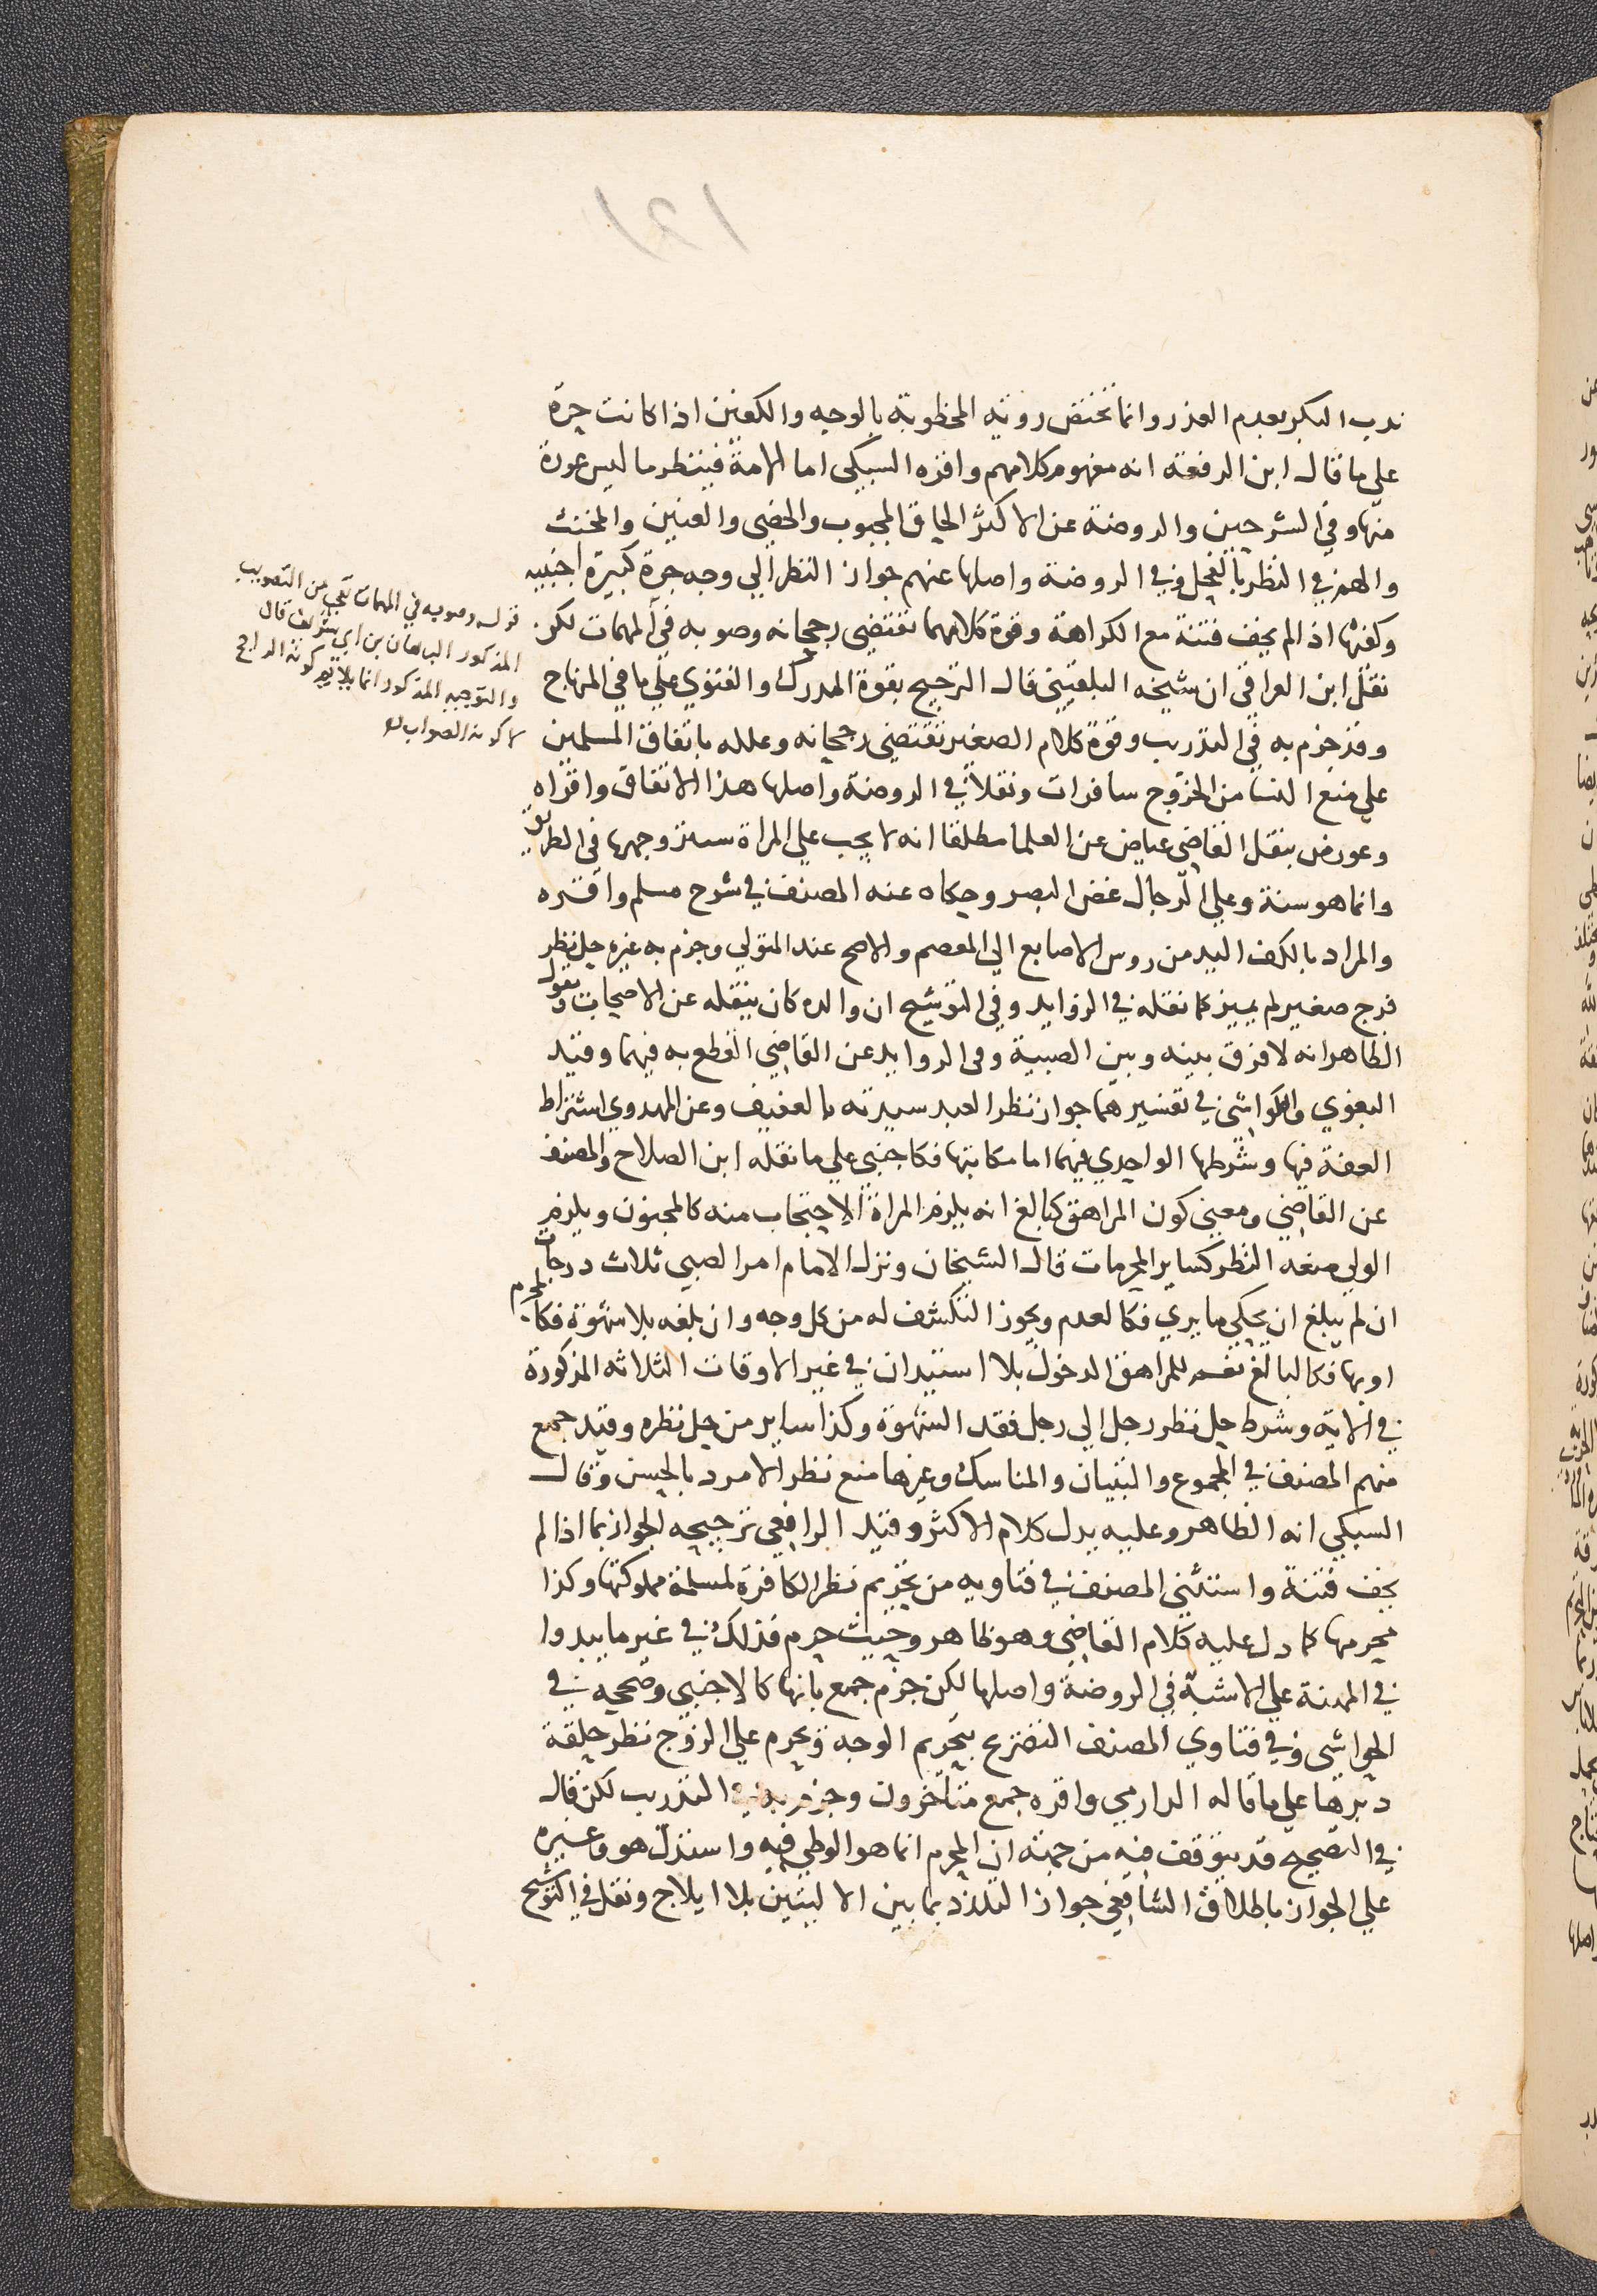 ندب البكر بعدم العذر وانما تختص روية المخطوبة بالوجه والكفين اذا كانت حرة
على ما قال ابن الرفعة انه مفهوم كلامهم واقره السبكي اما الامة فينظر ما ليس عورة
منها وفي الشرحين والروضة عن الاكثر الحاق المجبوب والخصي والعنين والمخنث
والهم في النظر بالفحل وفي الروضة واصلها عنهم جواز النظر الي وجه حرة كبيرة اجنبيه
وكفيها اذ الم يخف فتنة مع الكراهة وقوة كلامهما تقتضي رجحانه وصوبه في المهمات لكن
نقل ابن العراقي ان شيخه البلقيني قال الترجيح بقوة المدرك والفتوي علي ما في المنهاج
وقد جزم به في التدريب وقوة كلام الصغير تقتضي رجحانه وعلله باتفاق المسلمين
علي منع النسا من الخروج سافرات ونقلا في الروضة واصلها هذا الاتفاق واقراه
وعورض بنقل القاضي عياض عن العلما مطلقا انه لا يجب علي المراة ستر وجهها في الطريق
وانما هو سنة وعلي الرجال غض البصر وحكاه عنه المصنف في شرح مسلم واقره
والمراد بالكف اليد من روس الاصابع الي المعصم والاصح عند المتولي وجزم به غيره حل نظر
فرج صغير لم يميز كما نقله في الزوايد وفي التوشيح ان والده كان ينقله عن الاصحاب ويقول
الظاهر انه لا فرق بينه وبين الصبية وفي الروايد عن القاضي القطع به فيهما وقيد
البغوي والكواشي في تفسيرهما جواز نظر العبد سيدته بالعفيف وعن المهدوي اشتراط
العفة فيها وشرطها الواحدي فيهما اما مكاتبها فكاجنبي علي ما نقله ابن الصلاح والمصنف
عن القاضي ومعني كون المراهق كبالغ انه يلزم المراة الاحتجاب منه كالمجنون ويلزم
الولي منعه النظر كساير المحرمات قال الشيخان ونزل الامام امر الصبي ثلاث درجات
ان لم يبلغ ان يحكي ما يري فكالعدم ويجوز التكشف له من كل وجه وان بلغه بلا شهوة فكالمحرم
او بها فكالبالغ نعم للمراهق الدخول بلا استيذان في غير الاوقات الثلاثه المذكورة
في الاية وشرط حل نظر رجل الي رجل فقد الشهوة وكذا ساير من حل نظره وقيد جمع
منهم المصنف في المجموع والتبيان والمناسك وغيرها منع نظر الامرد بالحسن وقال
السبكي انه الظاهر وعليه يدل كلام الاكثر وقيد الرافعي ترجيحه الجواز بما اذا لم
يخف فتنة واستثني المصنف في فتاويه من تحريم نظر الكافرة لمسلمة مملوكتها وكذا
محرمها كما دل عليه كلام القاضي وهو ظاهر وحيث حرم فذلك في غير ما يبدوا
في المهنة علي الاشبه في الروضة واصلها لكن جزم جمع بانها كالاجنبي وصححه في
الحواشي وفي فتاوي المصنف التصريح بتحريم الوجه ويحرم علي الزوج نظر حلقة
دبرها علي ما قاله الدارمي واقره جمع متاخرون وجزم به في التدريب لكن قال
في التصحيح قد يتوقف فيه من جهة ان المحرم انما هو الوطي فيه واستدل هو وغيره
علي الجواز باطلاق الشافعي جواز التلذذ بما بين الاليتين بلا ايلاج ونقل في التوشيح
قوله وصوبه في المهمات تعجب من التصويب
المذكور البرهان بن ابي شريف قال
والتوجيه المذكور انما يلايم كونه الراجح
لا كونه الصواب
١٢١